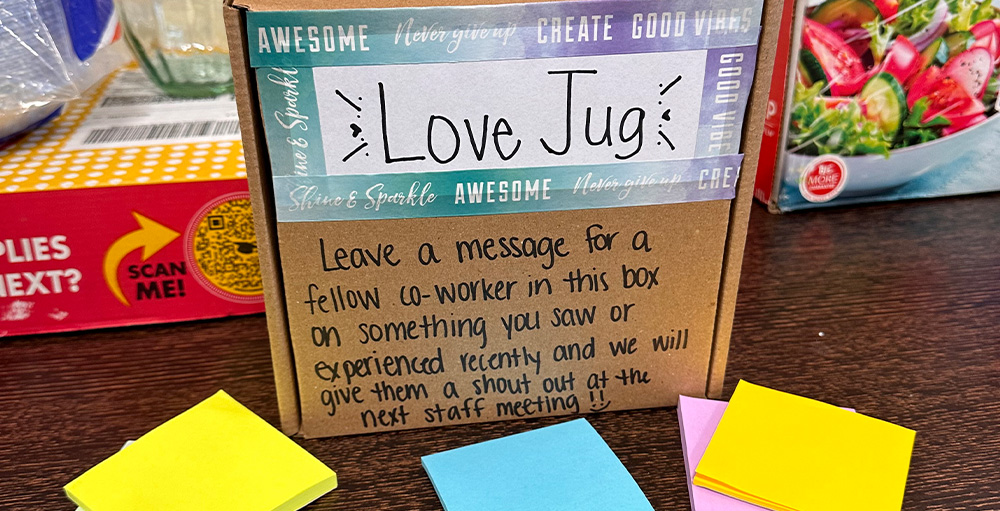 AWESOME Never give up CREATE GOOD VIBES
Shine & Sparkle
Love Jug
GOOD VIBE
Shine & Sparkle AWESOME Never give up CRE
Leave a message for a
fellow co-worker in this box
on something you saw or
experienced recently and we will
give them a shout out at the
next staff meeting !!
PLIES
NEXT?
SCAN
ME!
MORE